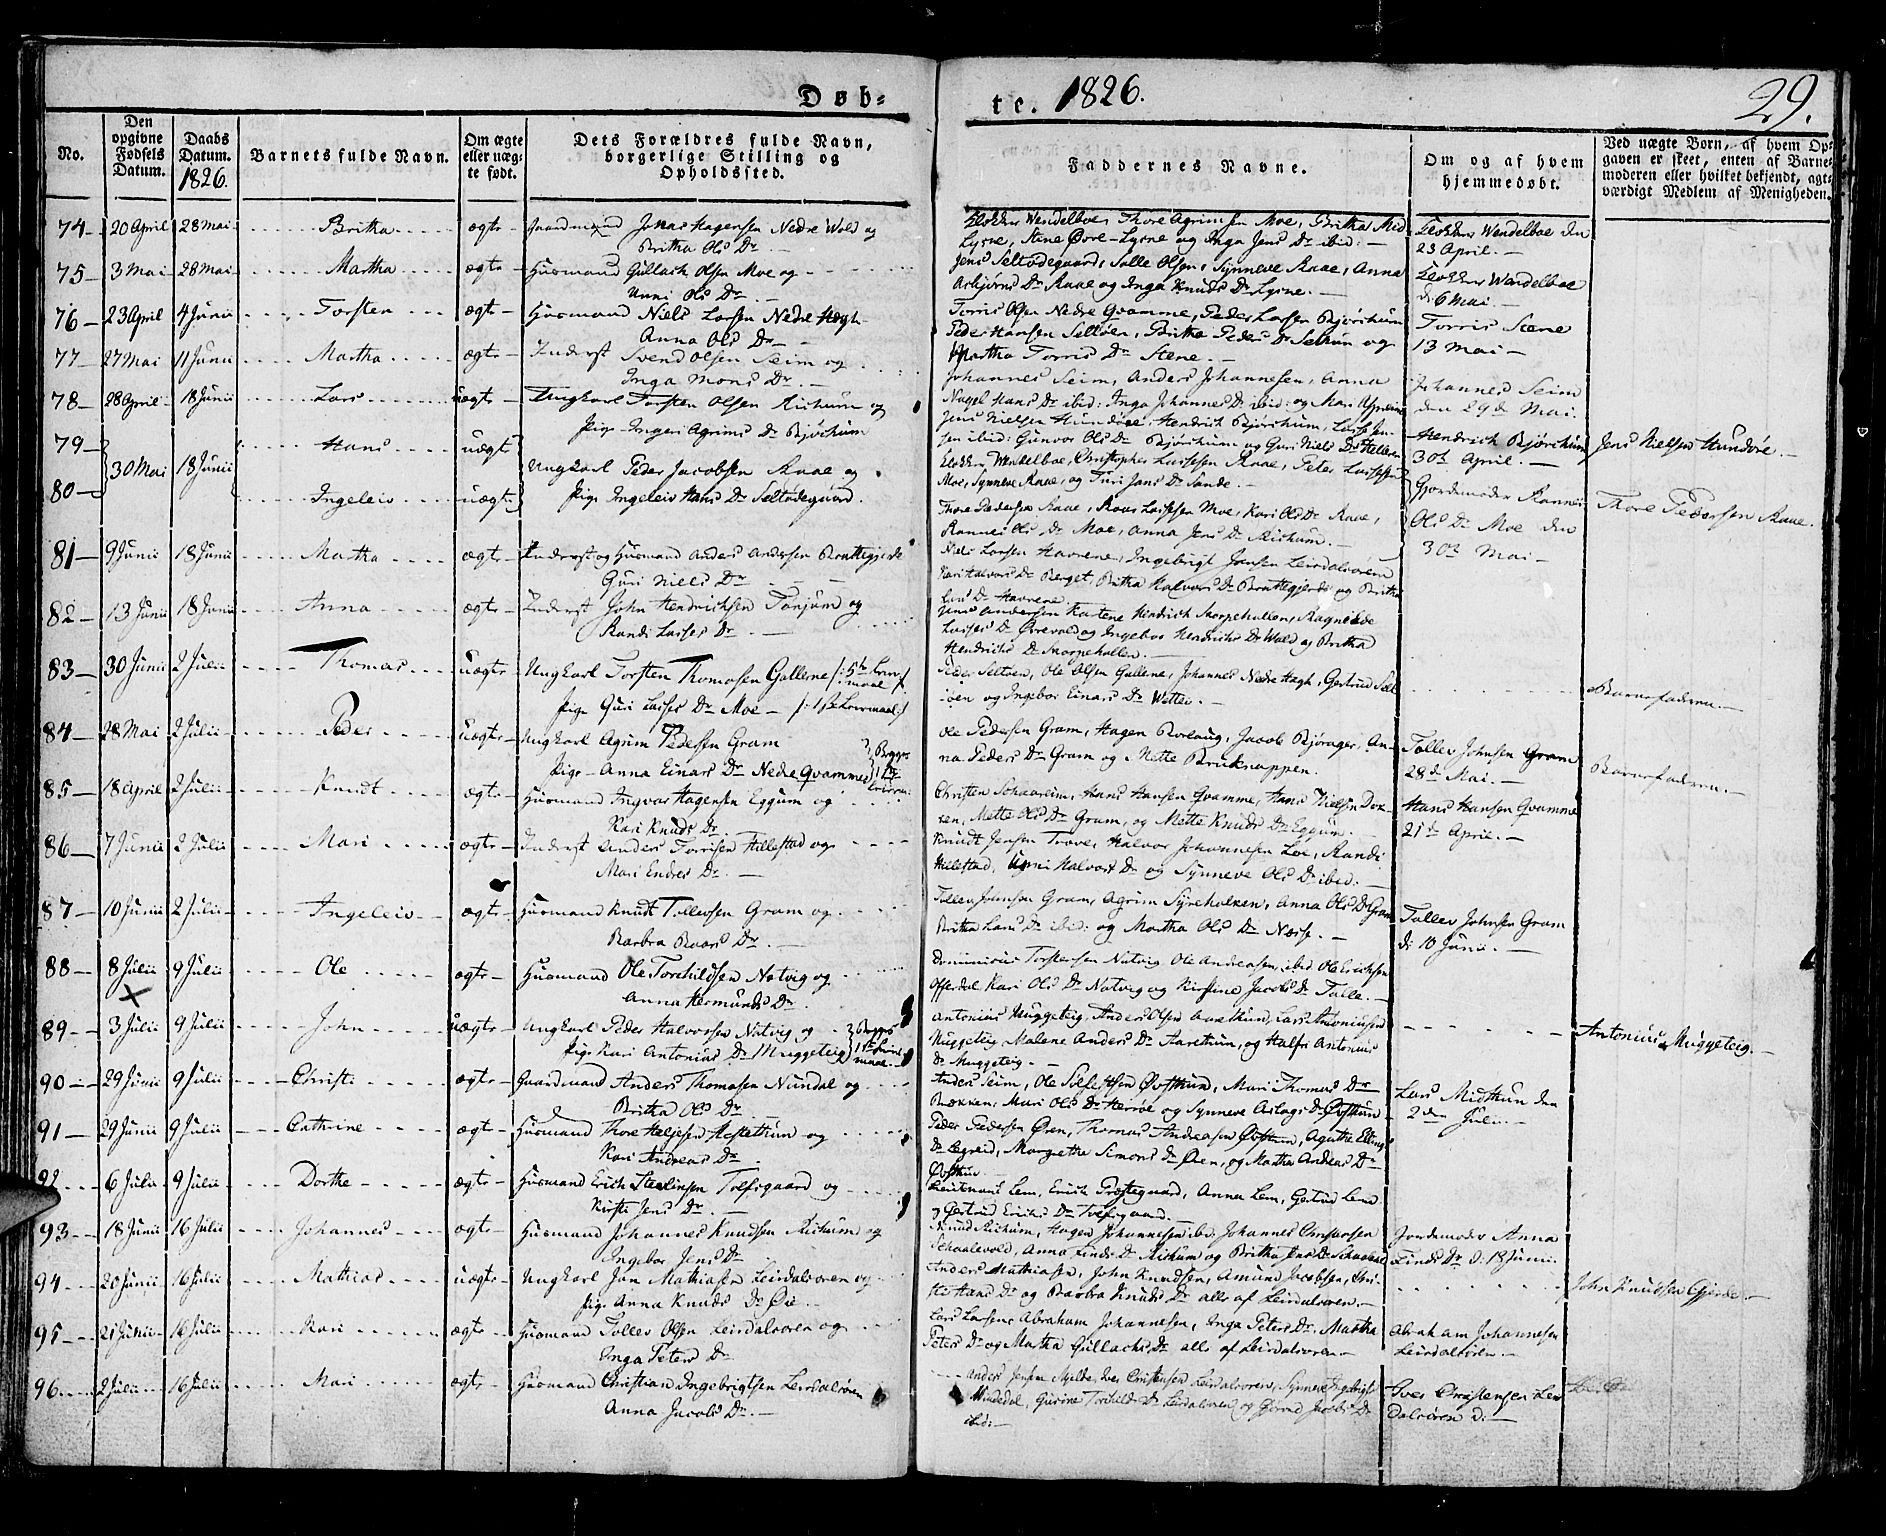 Døb=
te. 1826.
29.
No.
Den opgivne Fødsels Datum.
Daabs Datum. 1826.
Barnets fulde Navn.
Om ægte eller uæg-te født.
Dets Forældres fulde Navn, borgerlige Stilling og Opholdssted.
Faddernes Navne.
Om og af hvem hjemmedøbt.
Ved uægte Børn, af hvem Op-gaven er skeet, enten af Barne-moderen eller hvilket bekjendt, agt-værdigt Medlem af Menigheden.
74 20 April 28 Mai Britha ægte Gaardmand Jonas Hagensen Nedre Wold og
Britha Ols Dr
Klokker Wendelboe, Thore Agrimsen Moe, Britha Med
Lysne, Stine Øvre-Lysne og Inga Jens Dr ibid:
Klokker Wendelboe den
23 April.
75 3 Mai 28 Mai Martha ægte Huusmand Gullach Olsen Moe og
Unni Ols Dr
Jens Seltødegaard, Salle Olsen, Synneve Raae, Anna
Asbjørns Dr Raae og Inga Knuds Dr Lysne.
Klokker Wendelboe
d: 6 Mai.
76 23 April 4 Junii Torsten ægte Huusmand Niels Larsen Nedre Hægh
Anna Ols Dr
Torris Olsen Nedre Qvamme, Peder Larsen Bjørchum
Peder Hansen Seltøen, Britha Peders Dr Seltun og
Martha Torris Dr Stene.
Torris Stene
13 Mai
77 27 Mai 11 Junii Martha ægte Inderst Svend Olsen Seim og
Inga Mons Dr
Johannes Seim, Anders Johannesen, Anna
Nagel Hans Dr ibid: Inga Johannes Dr ibid: og Mari
Johannes Seim
den 29de Mai.
78 28 April 18 Junii Lars uægte Ungkarl Torsten Olsen Richum og
Pige Ingeri Agrims Dr Bjørchum
Jens Nielsen Hundøre, Hendrich Bjørchum, Lars Jen-
sen ibid: Gunvor Ols Dr Bjørchum og Guri Niels Dr Hellen
Hendrich Bjørchum
30te April.
Jens Nielsen Hundøre.
79 30 Mai 18 Junii Hans uægte
Ungkarl Peder Jacobsen Raae og
Pige Ingeleiv Hans Dr Seltødegaard.
Klokker Wendelboe, Christopher Larsen Raae, Peter Larsen
Moe, Synneve Raae, og Turi Jens Dr Sande.
80 Ingeleiv uægte
Thore Pedersen Raae, Roar Larsen Moe, Kari Ols Dr Raae,
Rannei Ols Dr Moe, Anna Jens Dr Richum.
Gjordemoder Rannei
Ols Dr Moe den
30te Mai
Thore Pedersen Raae.
81 9 Junii 18 Junii Martha ægte Inderst og Huusmand Anders Andersen Brattegjerde
Guri Niels Dr
Niels Larsen Havrene, Ingebrigt Jonsen Leirdalsøren
Kari Halvors Dr Berget, Britha Halvors Dr Brattegjerde og Britha
Lars Dr Havrene
82 13 Junii 18 Junii Anna ægte Inderst John Hendrichsen Tønjum og
Randi Larses Dr
Jens Andersen Kartene Hendrich Skorpehullen, Ragnilde
Larses Dr Øvrevold og Ingebor Hendrichs Dr Wold og Britha
Hendrichs Dr Skorpehullen.
83 30 Junii 2 Julii Thomas uægte Ungkarl Torsten Thomasen Gallerne /: 5te Leier-
maal :/
Pige Guri Larses Dr Moe /: 1ste Leiermaal :/
Peder Seltøen, Ole Olsen Gallerne, Johannes Nedre Hægh, Gertrud Selt
øen og Ingebor Einars Dr Wettei.
Barnefaderen.
84 28 Mai 2 Julii Peder uægte Ungkarl Agrim Pedersen Gram
Pige Anna Einars Dr Nedre Qvamme
Ole Pedersen Gram, Hagen Borlaug, Jacob Bjørager, An-
na Peders Dr Gram og Mette Bruknappen.
Tollev Johnsen Gram
28de Mai.
Barnefaderen.
85 18 April 2 Julii Knudt ægte Huusmand Ingvar Hagensen Eggum og
Kari Knuds Dr
Christen Schaareim, Hans Hansen Qvamme, Hans Nielsen Dok-
ken, Mette Ols Dr Gram, og Mette Knuds Dr Eggum.
Hans Hansen Qvamme
21de April.
86 7 Junii 2 Julii Mari ægte Inderst Anders Torrisen Hillestad og
Mari Endres Dr
Knudt Jensen Trave, Halvor Johannesen Loe, Randi
Hillestad, Unni Halvors Dr og Synneve Ols Dr ibid:
87 10 Junii 2 Julii Ingeleiv ægte Huusmand Knudt Tollevsen Gram og
Barbra Roars Dr
Tollev Johnsen Gram, Agrim Styreholten, Anna Ols Dr Gram
Britha Lars Dr ibid: og Martha Ols Dr Næsse.
Tollev Johnsen Gram
d: 10 Junii.
88 8 Julii 9 Julii Ole ægte Huusmand Ole Torchildsen Natvig og
Anna Hermunds Dr
Dominicus Torstensen Natvig Ole Andreasen, ibid Ole Erichsen
Offerdal, Kari Ols Dr Natvig og Kirstine Jacobs Dr Talle.
89 3 Julii 9 Julii John uægte Ungkarl Peder Halvorsen Natvig og
Pige Kari Antonius Dr Muggeteig
Antonius Muggeteig, Anders Olsen Aarethun, Lars Antoniusen
Muggeteig, Malene Anders Dr Aarethun, og Halfri Antonius
Dr Muggeteig
Antonius Muggeteig.
90 29 Junii 9 Julii Christi ægte Gaardmand Anders Thomasen Nundal og
Britha Ols Dr
Anders Seim, Ole Sjelfestsen Øvsthun, Mari Thomas Dr
Bækken, Mari Ols Dr Herrøe og Synneve Aslags Dr Øvsthun
Lars Midthun den
2den Julii.
91 29 Junii 9 Julii Cathrine ægte Huusmand Thore Heljesen Hestethun og
Kari Andreas Dr
Peder Pedersen Øren, Thomas Andreasen Øvsthun, Agathe Ellings
Dr Lægreid, Margrethe Simons Dr Øien, og Martha Andreas Dr
Øvsthun
92 6 Julii 9 Julii Dorthe ægte Huusmand Erich Steelinsen Tolfsgaard og
Kirsti Jens Dr
Lieutenant Lem, Erich Præstegaard, Anna Lem, Gertrud Lem
og Gertrud Erichs Dr Tolfsgaard.
93 18 Junii 16 Julii Johannes ægte Huusmand Johannes Knudsen Richum og
Ingebor Jens Dr
Knud Richum, Hagen Johannesen ibid, Johannes Christensen
Schaalevold, Anna Finds Dr Richum og Britha Jens Dr Schaalevold
Jordemoder Anna
Finds Dr d: 18 Junii.
94 20 Junii 16 Julii Mathias uægte Ungkarl Jan Mathiasen Leirdalsøren og
Pige Anna Knuds Dr Øie
Anders Mathiasen, John Knudsen, Amund Jacobsen, Chri-
sti Hans Dr og Barbra Knuds Dr alle af Leirdalsøren.
John Knudsen Gjerde.
95 21 Junii 16 Julii Kari ægte Huusmand Tollev Olsen Leirdalsøren og
Inga Peters Dr
Lars Larsen, Abraham Johannesen, Inga Peters Dr, Martha
Peters Dr og Martha Gullachs Dr alle af Leirdalsøren.
Abraham Johannesen
Leirdalsøren.
96 2 Julii 16 Julii Mari ægte Huusmand Christian Ingebrigtsen Leirdalsøren
Anna Jacobs Dr
Anders Jensen Mjelde, Iver Christensen Leirdalsøren, Synneve Ingebrigts
Muledal, Gurine Torchilds Dr Leirdalsøren og Gjørond Jacobs Dr
ibid:
Iver Christensen Leir
dalsøren d: